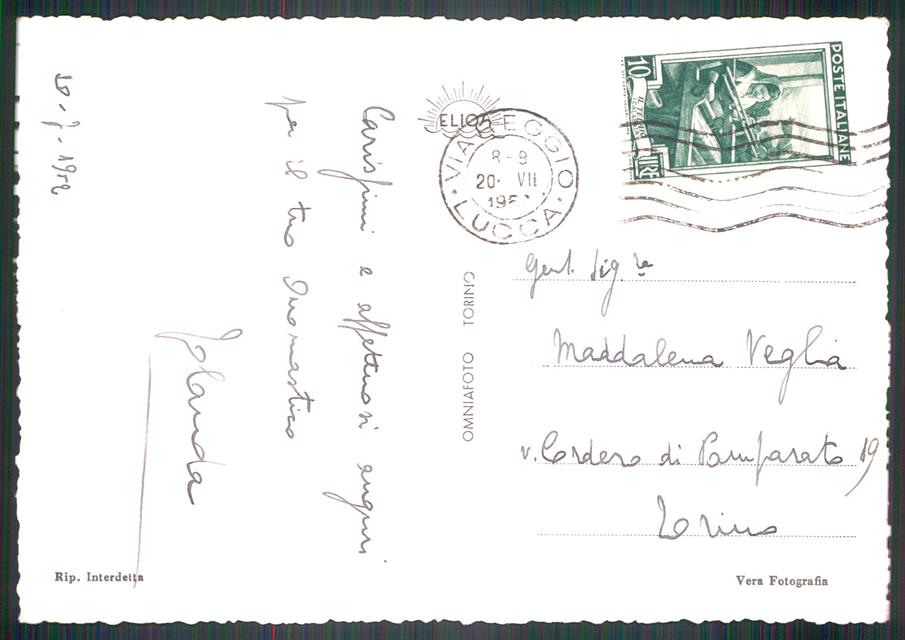 19-7-1952
Carissimi e affettuosi auguri
per il tuo Onomastico
Jolanda
Rip. Interdetta
ELIOS
OMNIAFOTO TORINO
VIAREGGIO
8-9
20· VII
LUCCA
POSTE ITALIANE
10
LIRE
Gent. Sig.ra
Maddalena Veglia
v. Cordero di Pamparato 19
Torino
Vera Fotografia